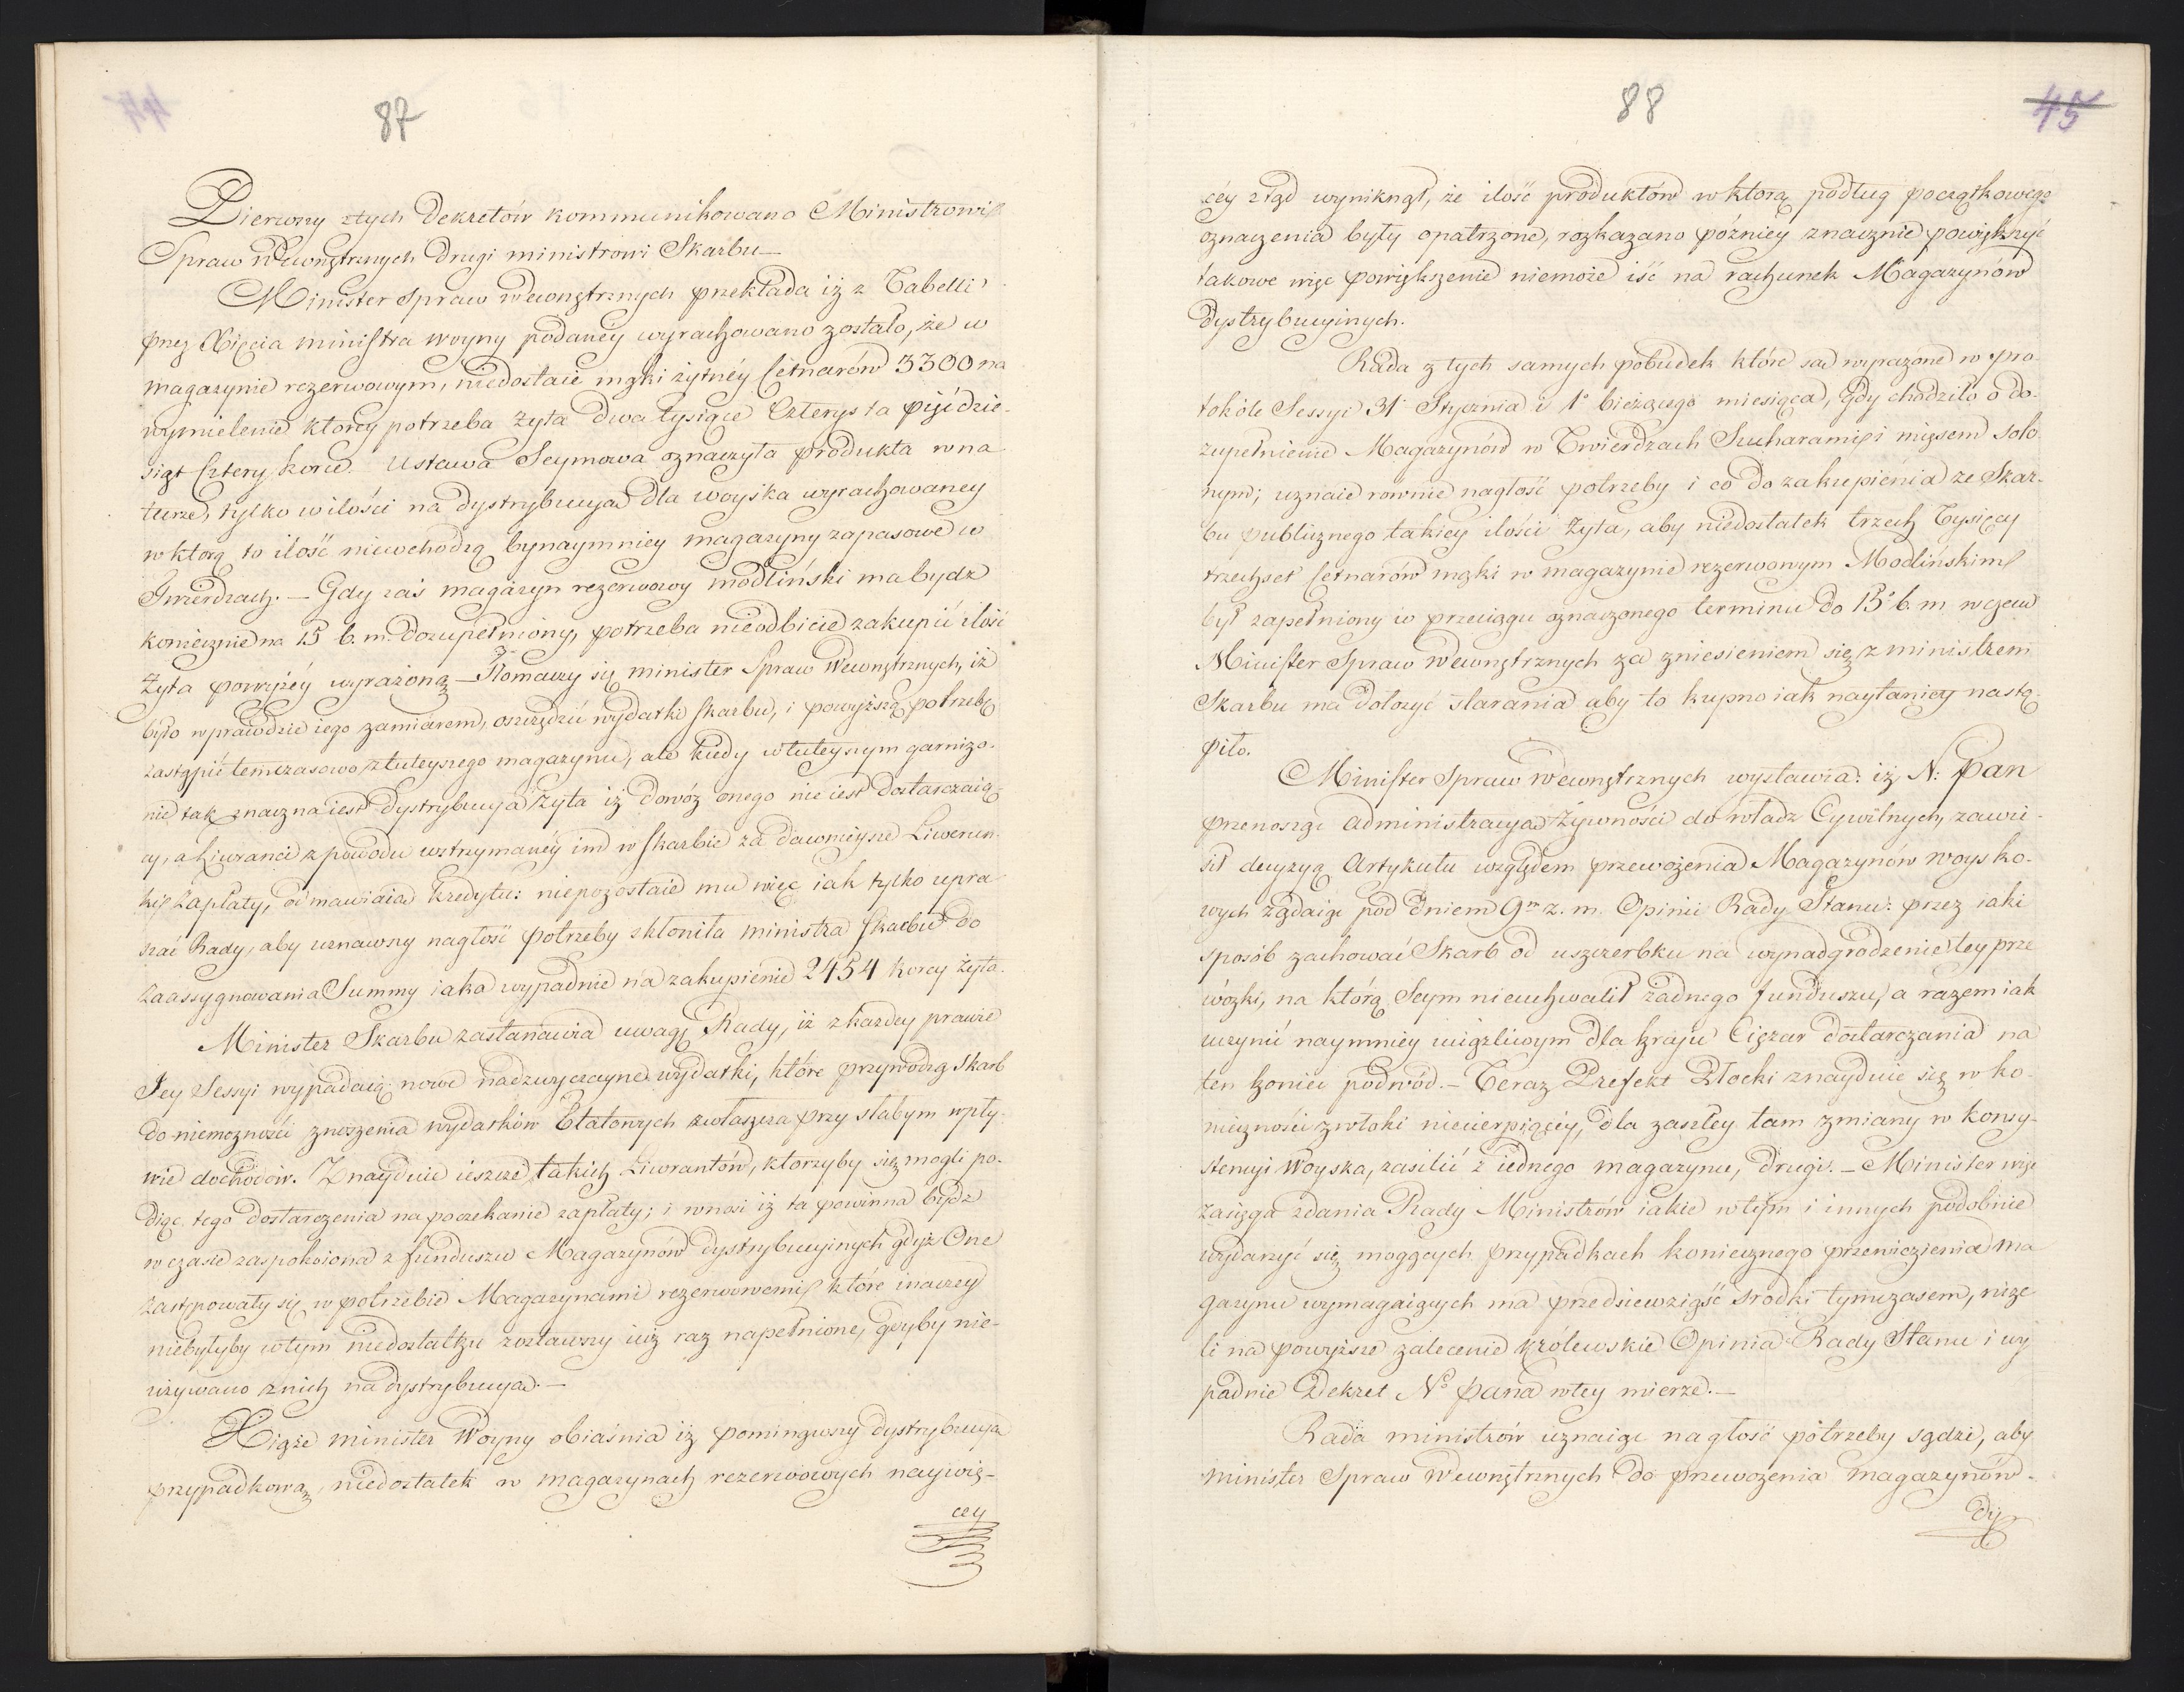 87
Pierwszy z tych Dekretów kommunikowano Ministrowi
Spraw Wewnętrznych Drugi ministrowi Skarbu —
Minister Spraw Wewnętrznych przekłada iż z Tabelli
przez Xięcia ministra woyny podaney wyrachowano zostało, że w
magazynie rezerwowym, niedostaie mąki żytnéy Cetnarów 3300 na
wymielenie ktorey potrzeba Żyta dwa tysiące Czterysta pięćdzie-
siąt Cztery korcé. Ustawa Seymowa oznaczyła produkta w na
turze, tylko w ilości na dystrybucyą dla woyska wyrachowaney
w ktorą to ilość niewchodzą bynaymniey magazyny zapasowe w
Twierdzach. — Gdy zaś magazyn rezerwowy modliński ma bydz
koniecznie na 15 b. m. Dozupełniony, potrzeba nieodbicie zakupić ilość
Żyta powyżéy wyrażoną — Tłomaczy się minister Spraw Wewnętrznych, iż
było wprawdzie iego zamiarem, oszczędzić wydatki skarbu, i powyższą potrzebę
zastąpić temczasowo z tuteyszego magazynu, ale kiedy w tuteyszym garnizo-
nie tak znaczna iest dystrybucya Żyta iż dowóz onego nie iest dostarczaią-
cy, a Liweranci z powodu wstrzymanéy im w skarbie za dawnieysze Liwerun-
ki zapłaty, odmawiaią kredytu: niepozostaie mu więc iak tylko upra
szać Rady, aby uznawszy nagłość potrzeby skłoniła ministra skarbu do
zaassygnowania Summy iaka wypadnie na zakupienie 2454 korcy Żyta.
Minister Skarbu zastanawia uwagę Rady, iż z każdey prawie
Jey Sessyi wypadaią nowe nadzwyczayne wydatki, które przywodzą Skarb
do niemożności znoszenia wydatków Etatowych zwłaszcza przy słabym wpły-
wie dochodów. Znayduie ieszcze takich Liwerantów, ktorzyby się mogli po-
diąć tego dostarczenia na poczekanie zapłaty; i wnosi iż ta powinna bydz
w czasie zaspokoiona z funduszu Magazynów dystrybucyinych gdyż One
zastępowały się w potrzebie Magazynami rezerwowemi które inaczey
niebyłyby w tym niedostatku zostawszy iuż raz napełnione, gdyby nie-
używano z nich na dystrybucyą. —
Xiąże minister Woyny obiaśnia iż pominąwszy dystrybucyą
przypadkową, niedostatek w magazynach rezerwowych naywię-
cey
88
45
céy ztąd wyniknął, że ilość produktów w ktorą podług początkowego
oznaczenia były opatrzone, rozkazano pózniéy znacznie powiększyć
takowe więc powiększenie niemoże iść na rachunek Magazynów
dystrybucyinych.
Rada z tych samych pobudek które są wyrażone w pro
tokóle Sessyi 31º Stycznia i 1º bieżącego miesiąca, gdy chodziło o do-
zupełnienie Magazynów w Twierdzach Sucharami i mięsem solo
nym; uznaie rownie nagłość potrzeby i co do zakupienia ze Skar-
bu publicznego takiey ilości Żyta, aby niedostatek trzech Tysięcy
trzechset Cetnarów mąki w magazynie rezerwowym Modlińskim
był zapełniony w przeciągu oznaczonego terminu do 15º b. m. w czem
Minister Spraw Wewnętrznych za zniesieniem się z ministrem
Skarbu ma dołożyć starania aby to kupno iak naytaniey nastą-
piło.
Minister Spraw Wewnętrznych wystawia: iż N: Pan
przenosząc administracyą Żywności do władz Cywilnych, zawie-
sił decyzyą Artykułu względem przewożenia Magazynów woysko-
wych żądaiąc pod dniem 9m z. m. Opinii Rady Stanu: przez iaki
sposób zachować Skarb od uszczerbku na wynadgrodzenie tey prze
wózki, na którą Seym nieuchwalił żadnego funduszu, a razem iak
uczynić naymniey uciążliwym dla kraju Ciężar dostarczania na
ten koniec podwód. — Teraz Prefekt Płocki znayduie się w ko-
nieczności zwłoki niecierpiącéy, dla zaszłey tam zmiany w konsy-
stencyi Woyska, zasilić z iednego magazynu, drugi. — Minister więc
zasięga zdania Rady Ministrów iakie w tym i innych podobnie
wydarzyć się mogących przypadkach koniecznego przewiezienia ma
gazynu wymagaiących ma przedsiewziąść srodki tymczasem, niże
li na powyższe zalecenie królewskie Opinia Rady Stanu i wy
padnie Dekret Nº Pana w tey mierze. —
Rada ministrów uznaiąc nagłość potrzeby sądzi, aby
Minister Spraw Wewnętrznych do przewożenia magazynów -
dy